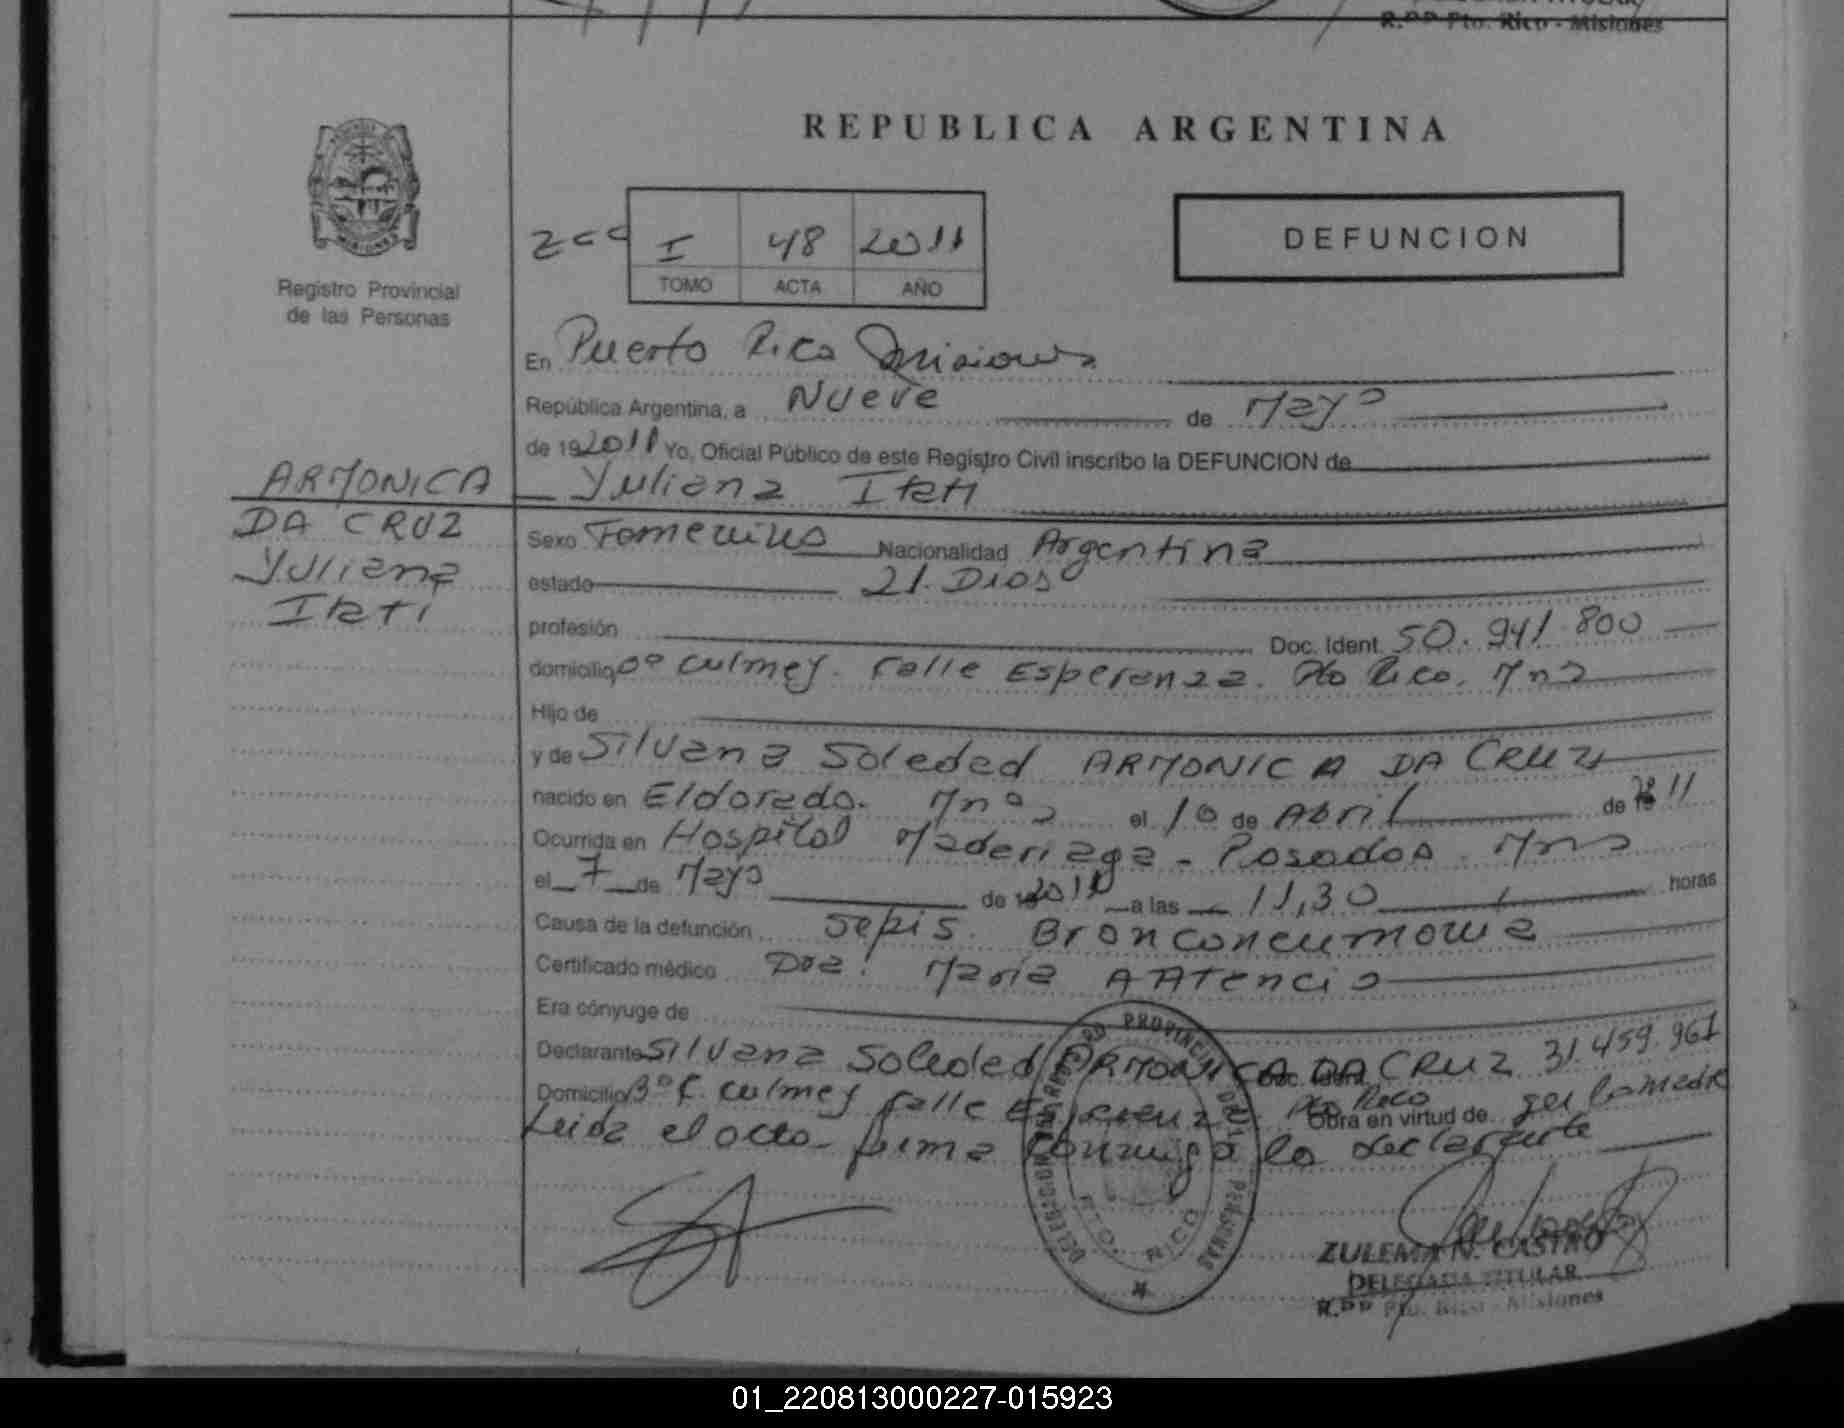 R.PP Pto. Rico - Misiones
REPUBLICA ARGENTINA
Registro Provincial
de las Personas
I 48 2011
TOMO ACTA AÑO
DEFUNCION
En Puerto Rico Misiones
República Argentina, a Nueve de Mayo
de 19 2011 Yo, Oficial Público de este Registro Civil inscribo la DEFUNCION de
Yuliana Itati
ARMONICA
DA CRUZ
Yuliana
Itati
Sexo Femenino Nacionalidad Argentina
estado 21. Dias
profesión Doc. Ident. 50.941.800
domicilio Bº Culmey. Calle Esperanza. Pto Rico. Mns
Hijo de
y de Silvana Soledad ARMONICA DA CRUZ
nacido en Eldorado. Mnes el 16 de Abril de 2011
Ocurrida en Hospital Maderiaga - Posadas - Mns
el 7 de Mayo de 2011 a las 11,30 horas
Causa de la defunción Sepis. Bronconeumonia
Certificado médico Dra. Maria A Atencio
Era cónyuge de
Declarante Silvana Soledad ARMONICA DA CRUZ Doc. Ident. 31.459.961
Domicilio Bº C. Culmey Calle Esperanza. Pto Rico Obra en virtud de ser la madre
Leida el acta firma conmigo la declarante
REGISTRO PROVINCIAL DE LAS PERSONAS
DELEGACION
PTO. RICO
ZULEMA N. CASTRO
DELEGADA TITULAR
R.PP Pto. Rico - Misiones
01_220813000227-015923